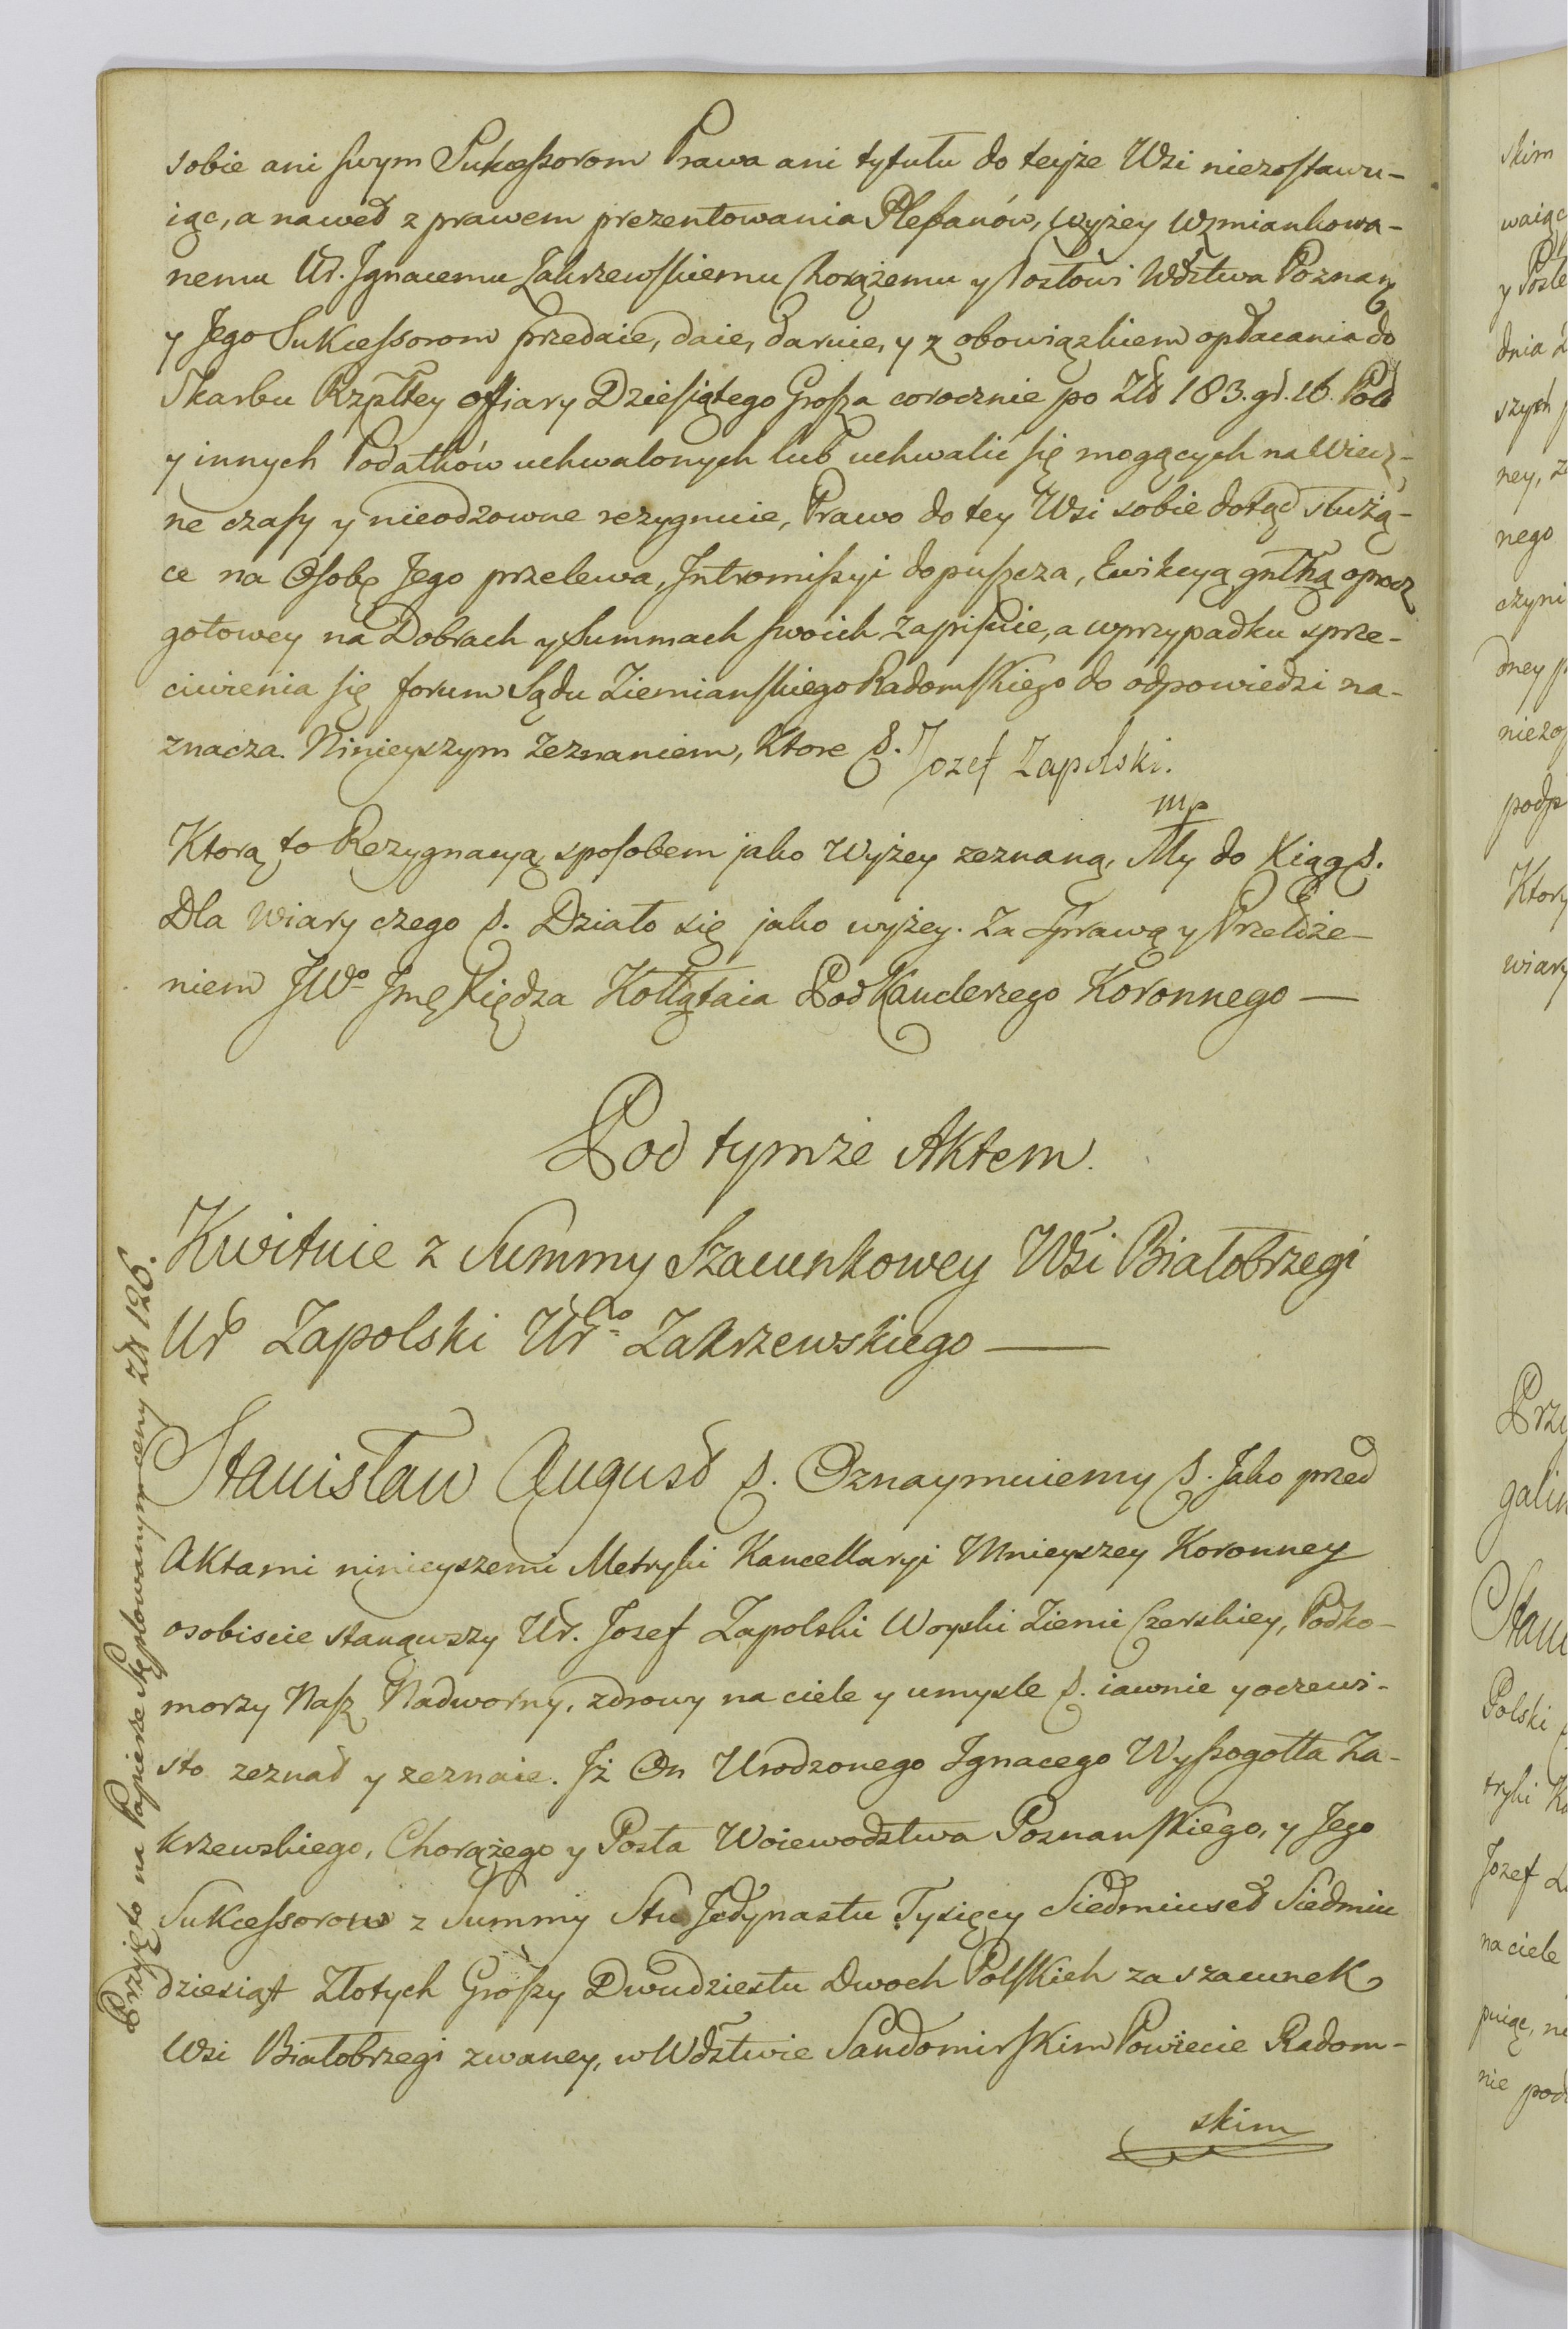 sobie ani swym Sukcessorom Prawa ani tytułu do teyże Wsi niezostawu-
iąc, a nawet z prawem prezentowania Plebanów, wyżey wzmiankowa-
nemu Ur. Ignacemu Zakrzewskiemu Chorążemu y Posłowi Wdztwa Poznań
y Jego Sukcessorom przedaie, daie, daruie, y z obowiązkiem opłacania do
Skarbu Rzpltey offiary Dziesiątego Grosza corocznie po Złł 183. gr. 16. Pol
y innych Podatków uchwalonych lub uchwalić się mogących na Wiecz-
ne czasy y nieodzowne rezygnuie, Prawo do tey Wsi sobie dotąd służą-
ce na Osobę Jego przelewa, Intromissyi dopuszcza, Ewikcyą gnlną oprocz
gotowey na Dobrach y Summach swoich zapisuie, a w przypadku sprze-
ciwienia się forum Sądu Ziemianskiego Radomskiego do odpowiedzi na-
znacza. Ninieyszym Zeznaniem, Ktore &. Jozef Zapolski.
mp
Ktorą to Rezygnacyą sposobem jako Wyżey zeznaną, My do Xiąg &.
Dla wiary czego &. Działo się jako wyżey. Za Sprawą y Przełoże-
niem JWo Jmę Xiędza Kołłątaia PodKanclerzego Koronnego —
Pod tymże Aktem.
Kwituie z Summy Szacunkowey Wsi Białobrzegi
Ur Zapolski Urgo Zakrzewskiego —
Stanisław August &. Oznaymuiemy &. Jako przed
Aktami ninieyszemi Metryki Kancellaryi Mnieyszey Koronney
osobiscie stanąwszy Ur. Jozef Zapolski Woyski Ziemi Czerskiey, Podko-
morzy Nasz Nadworny, zdrowy na ciele y umysle &. iawnie y oczewi-
sto zeznał y zeznaie. Iż On Urodzonego Ignacego Wyssogotta Za-
krzewskiego, Chorążego y Posła Woiewodztwa Poznanskiego, y Jego
Sukcessorow z Summy Stu Jedynastu Tysięcy Siedmiuset Siedmiu
dziesiąt Złotych Groszy Dwudziestu Dwoch Polskich za szacunek
Wsi Białobrzegi zwaney, w Wdztwie Sandomirskim Powiecie Radom-
skim
Przyięto na Papierze Stęplowanym ceny Złł 126.
skim
Ktory
wiary
Polski
Jozef
na ciele